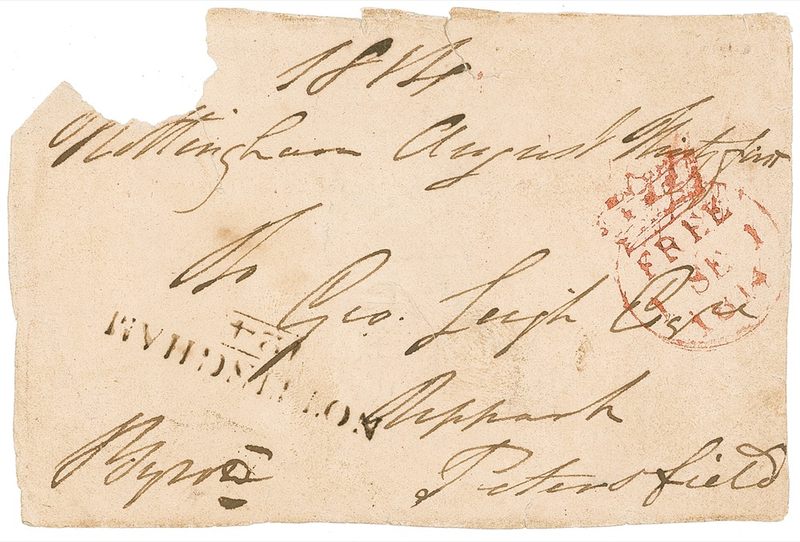 1814
Nottingham August Thirty first
To
Geo. Leigh Esqre
Uppark
Byron Petersfield
FREE
1 SE 1
1814
NOTTINGHAM